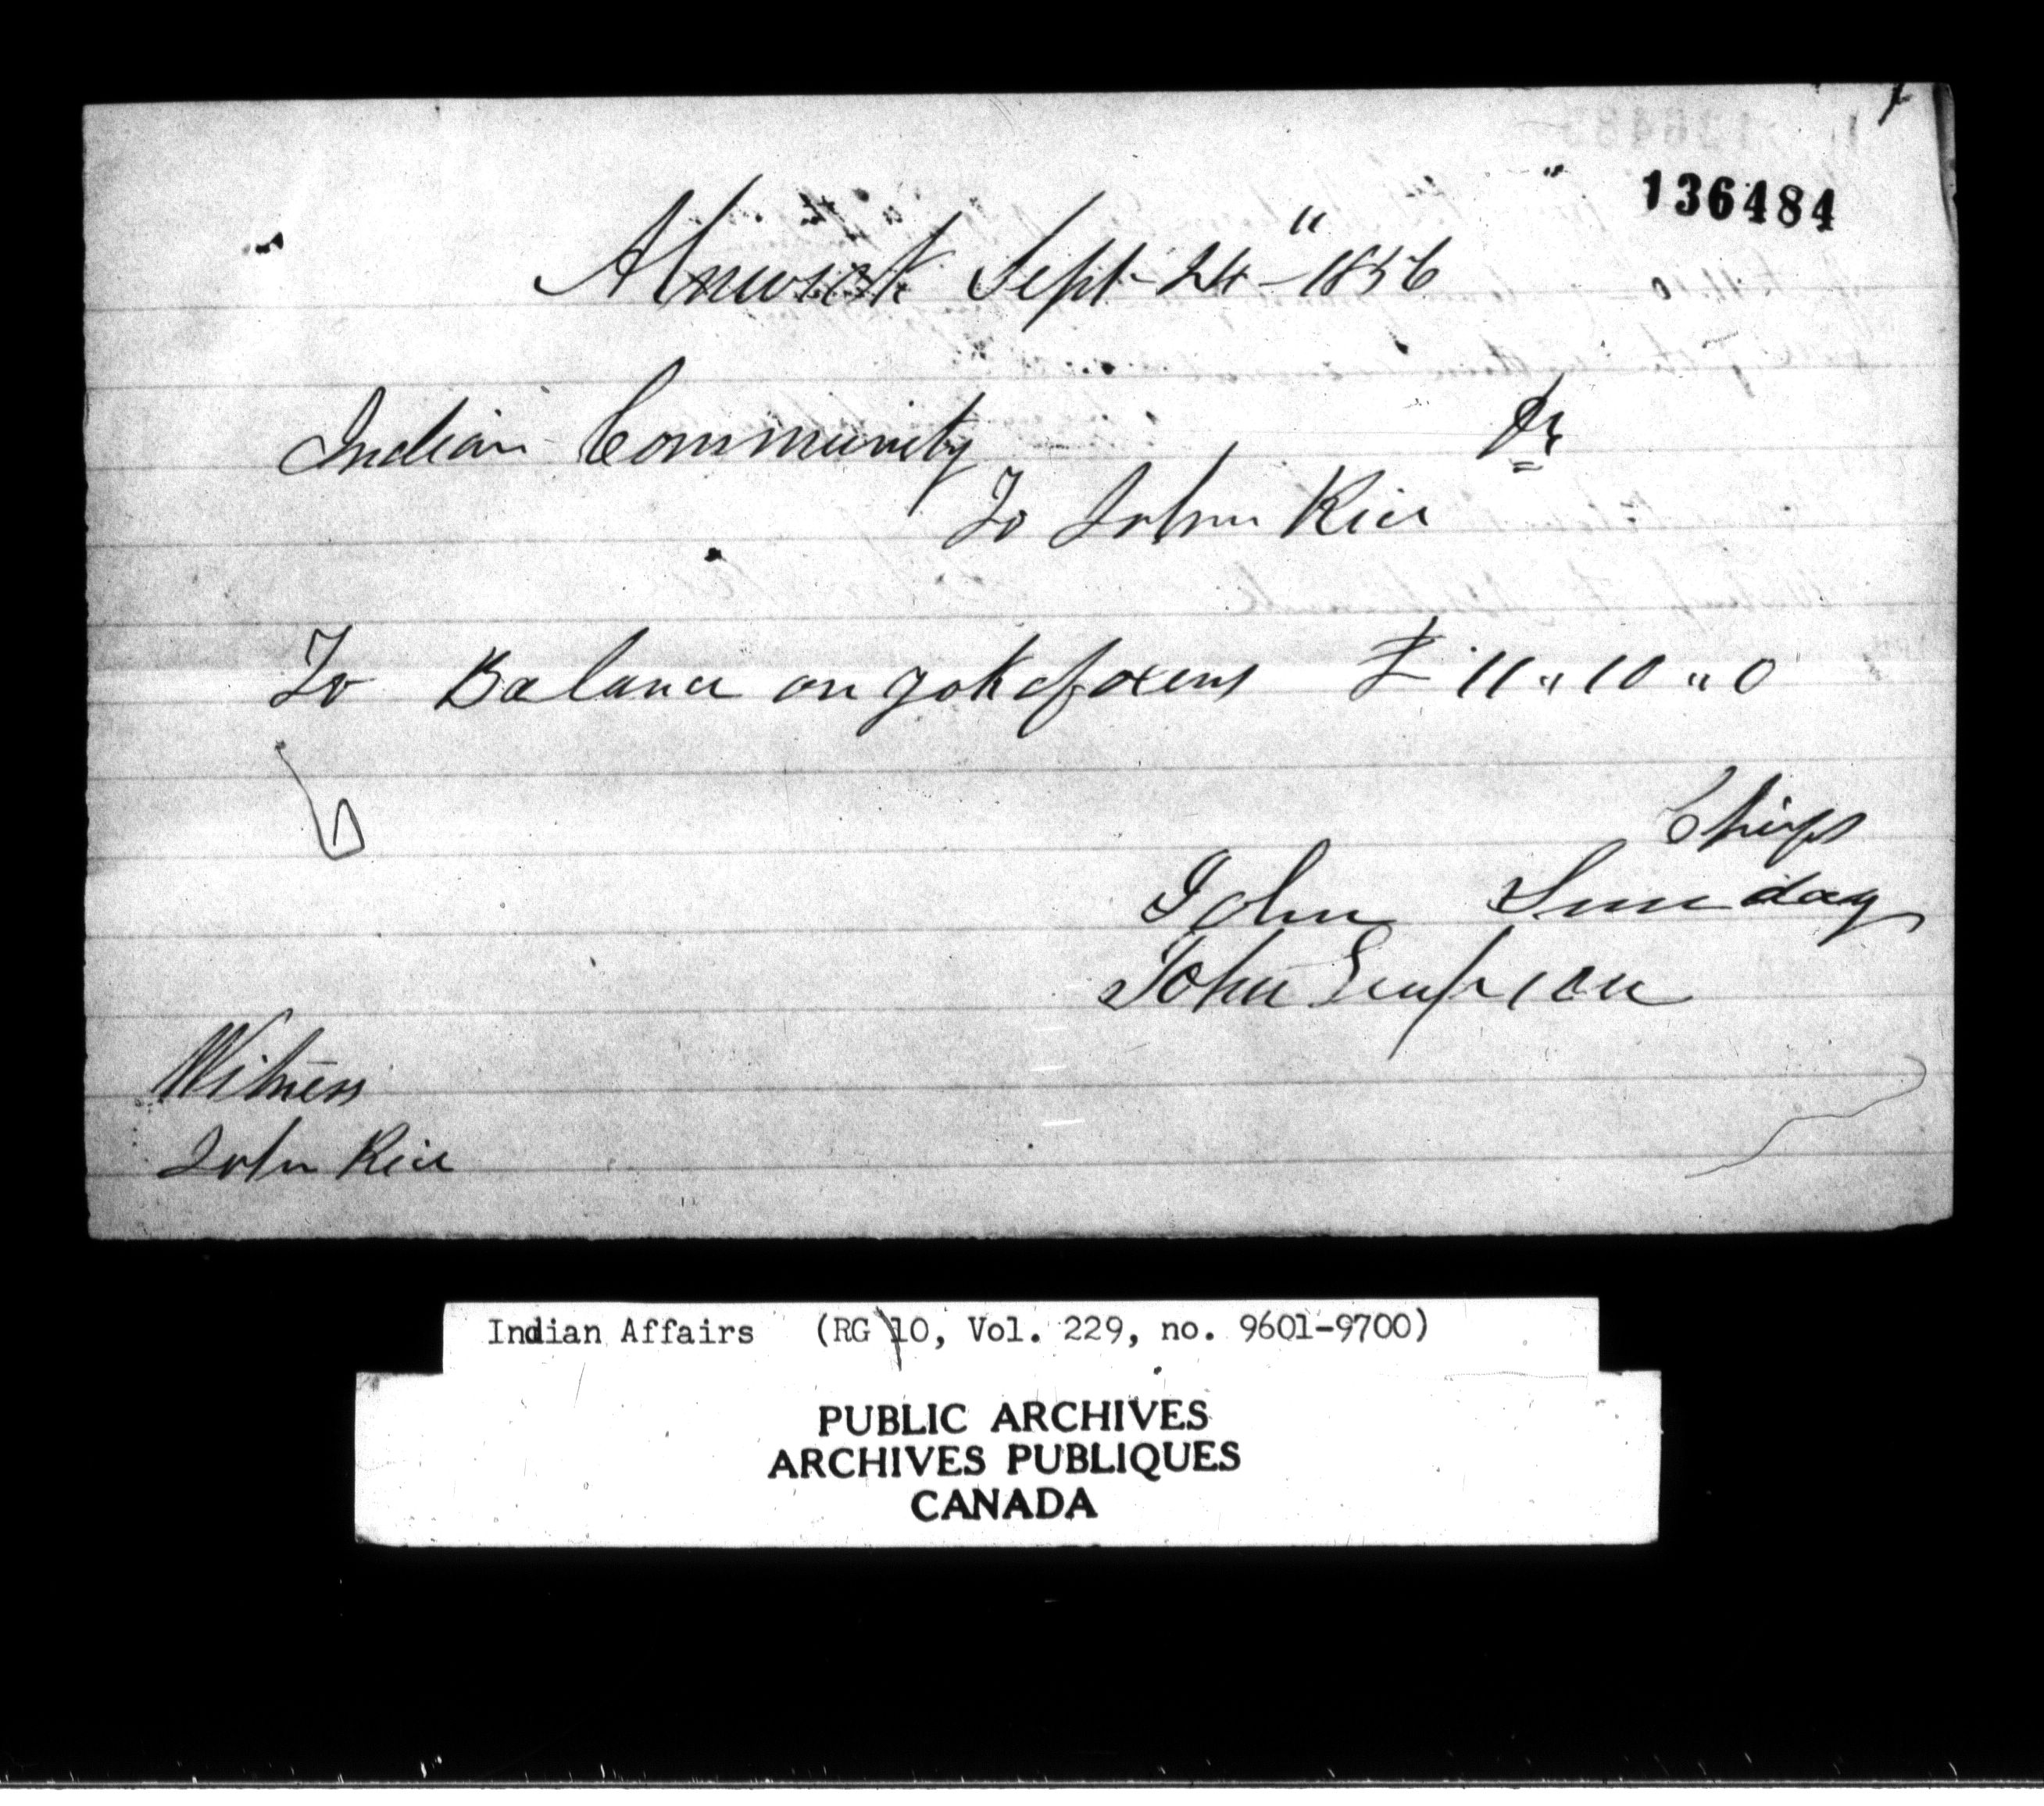 136484
Alnwick Sept 24 " 1856
Indian Community Dr
To John Rice
To Balance on yok of oxens £ 11 " 10 " 0
Chiefs
John Sunday
John Simpson
Witness
John Rice
Indian Affairs (RG 10, Vol. 229, no. 9601-9700)
PUBLIC ARCHIVES
ARCHIVES PUBLIQUES
CANADA